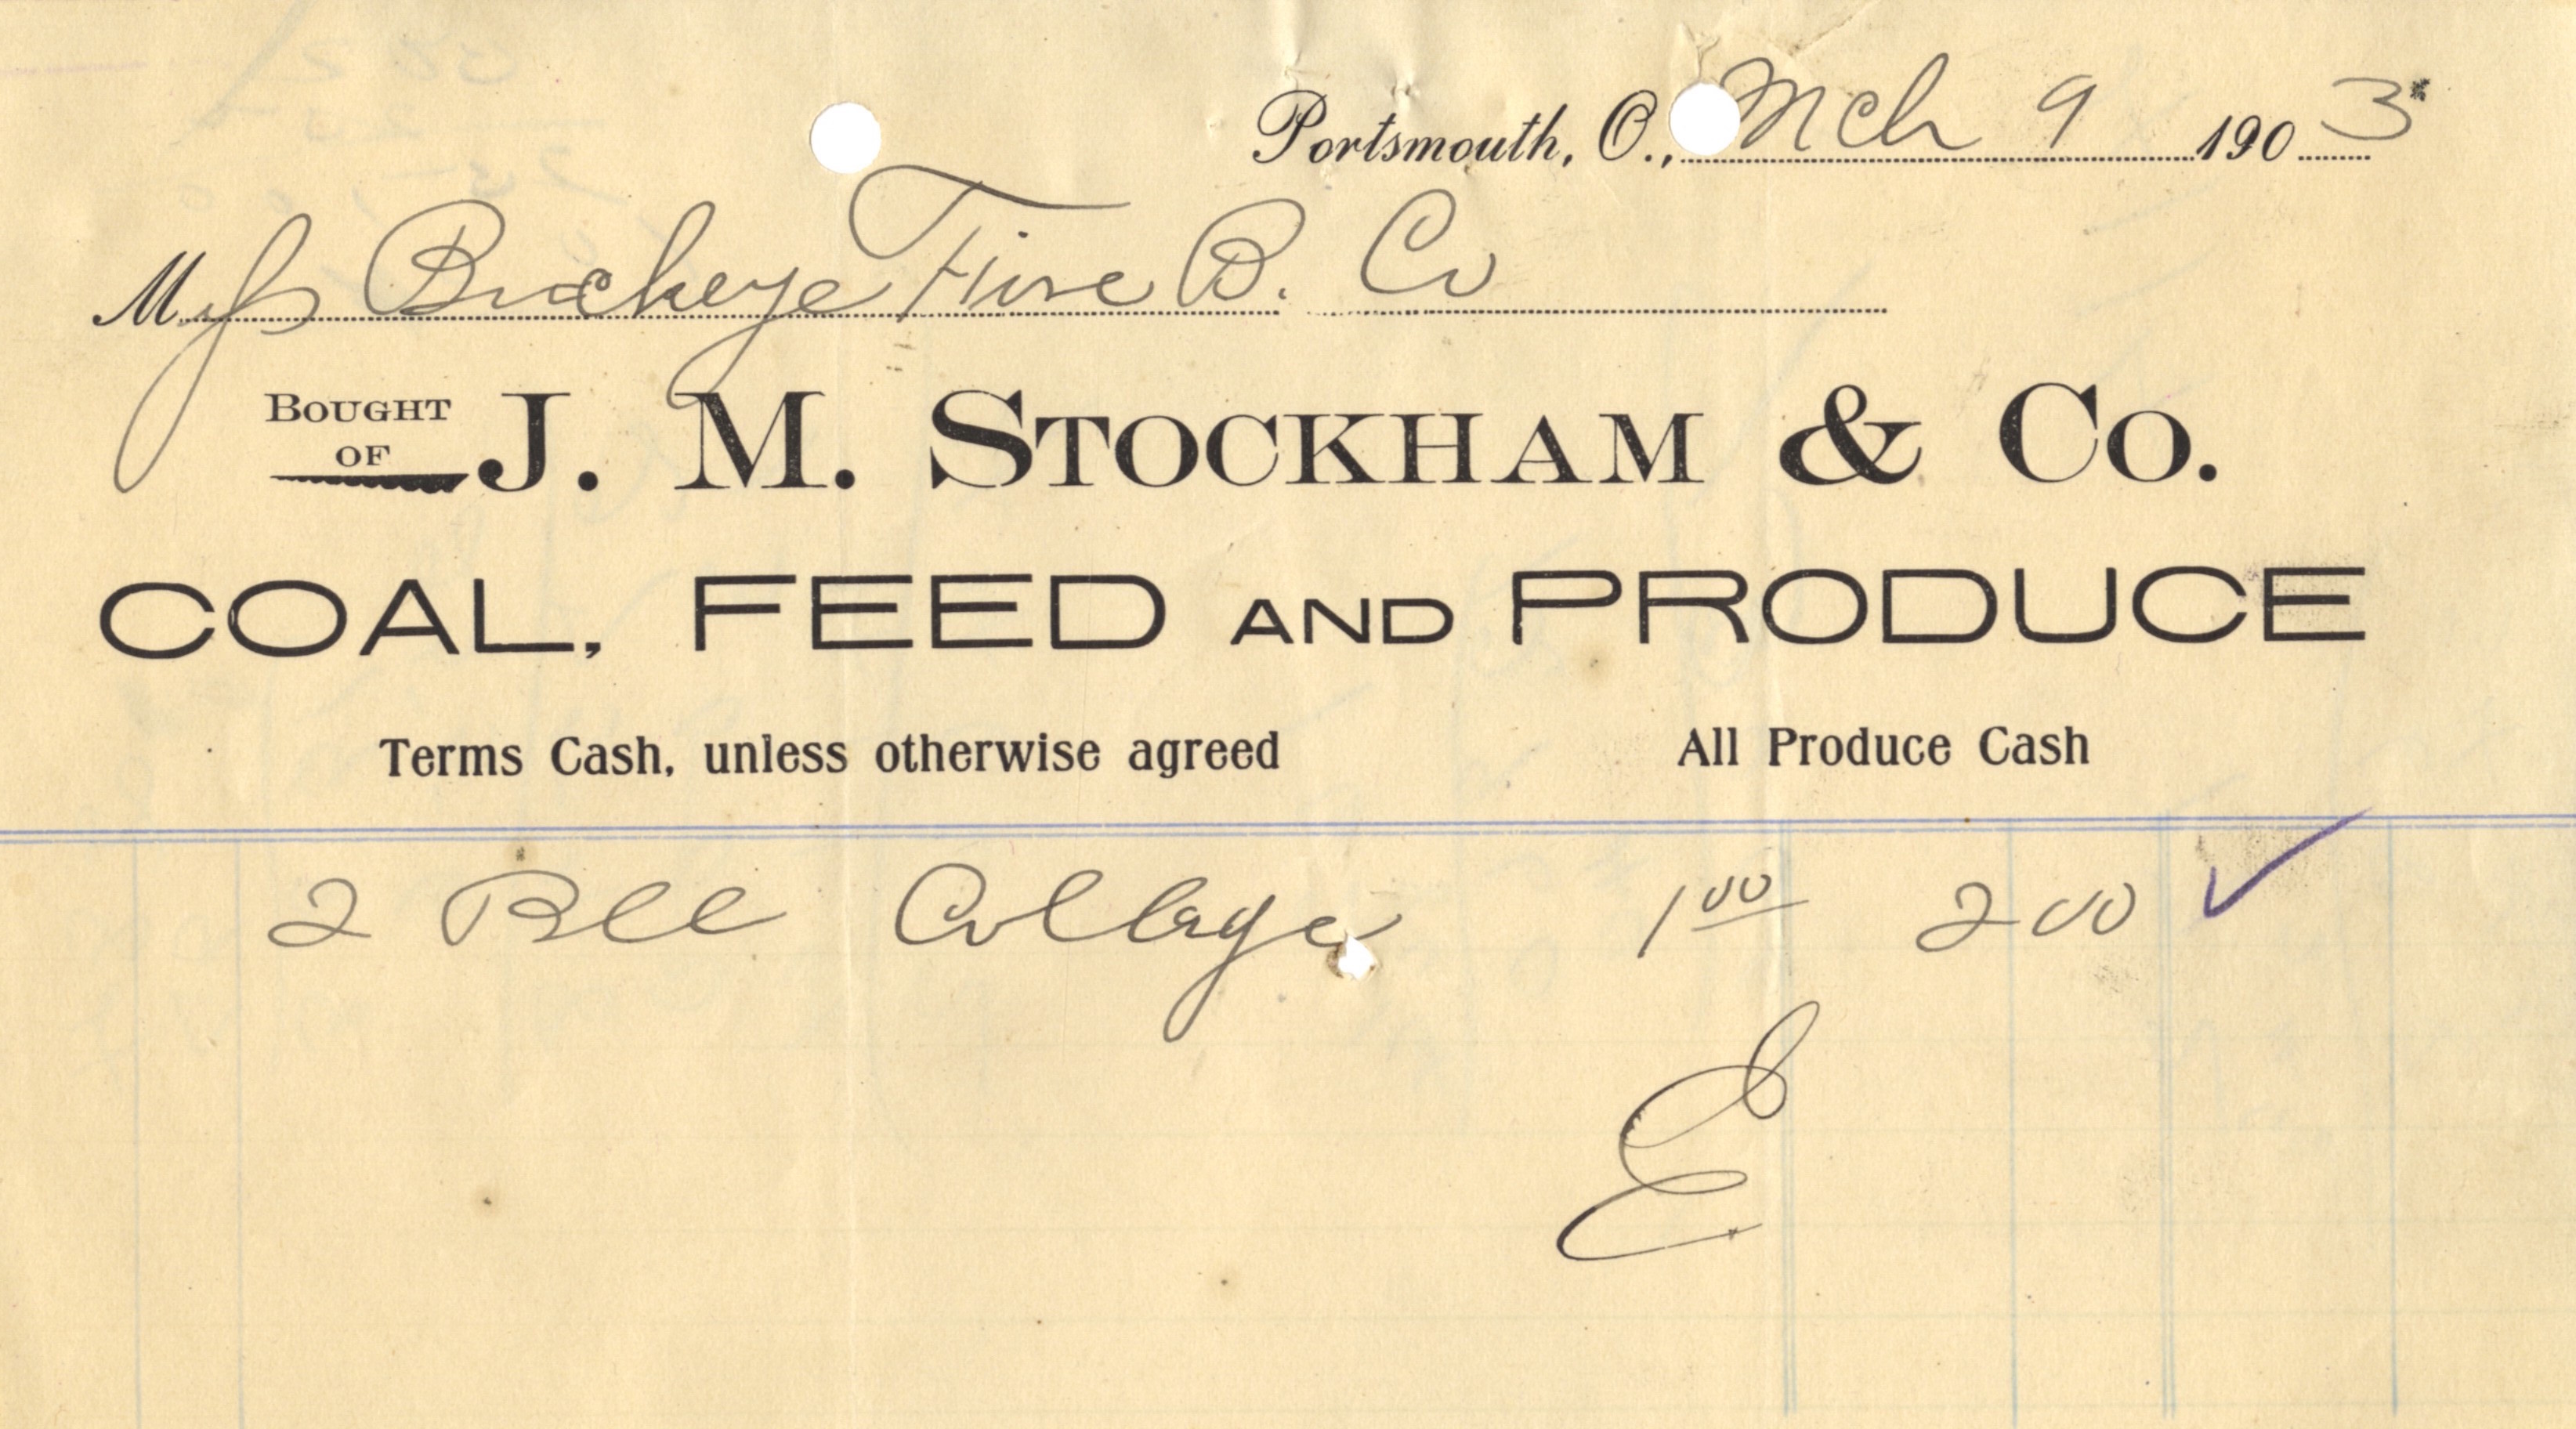 Portsmouth, O., Mch 9 1903
Mess Buckeye Fire B. Co
BOUGHT OF J. M. STOCKHAM & CO.
COAL, FEED AND PRODUCE
Terms Cash, unless otherwise agreed All Produce Cash
2 100 2 00 ✓
E